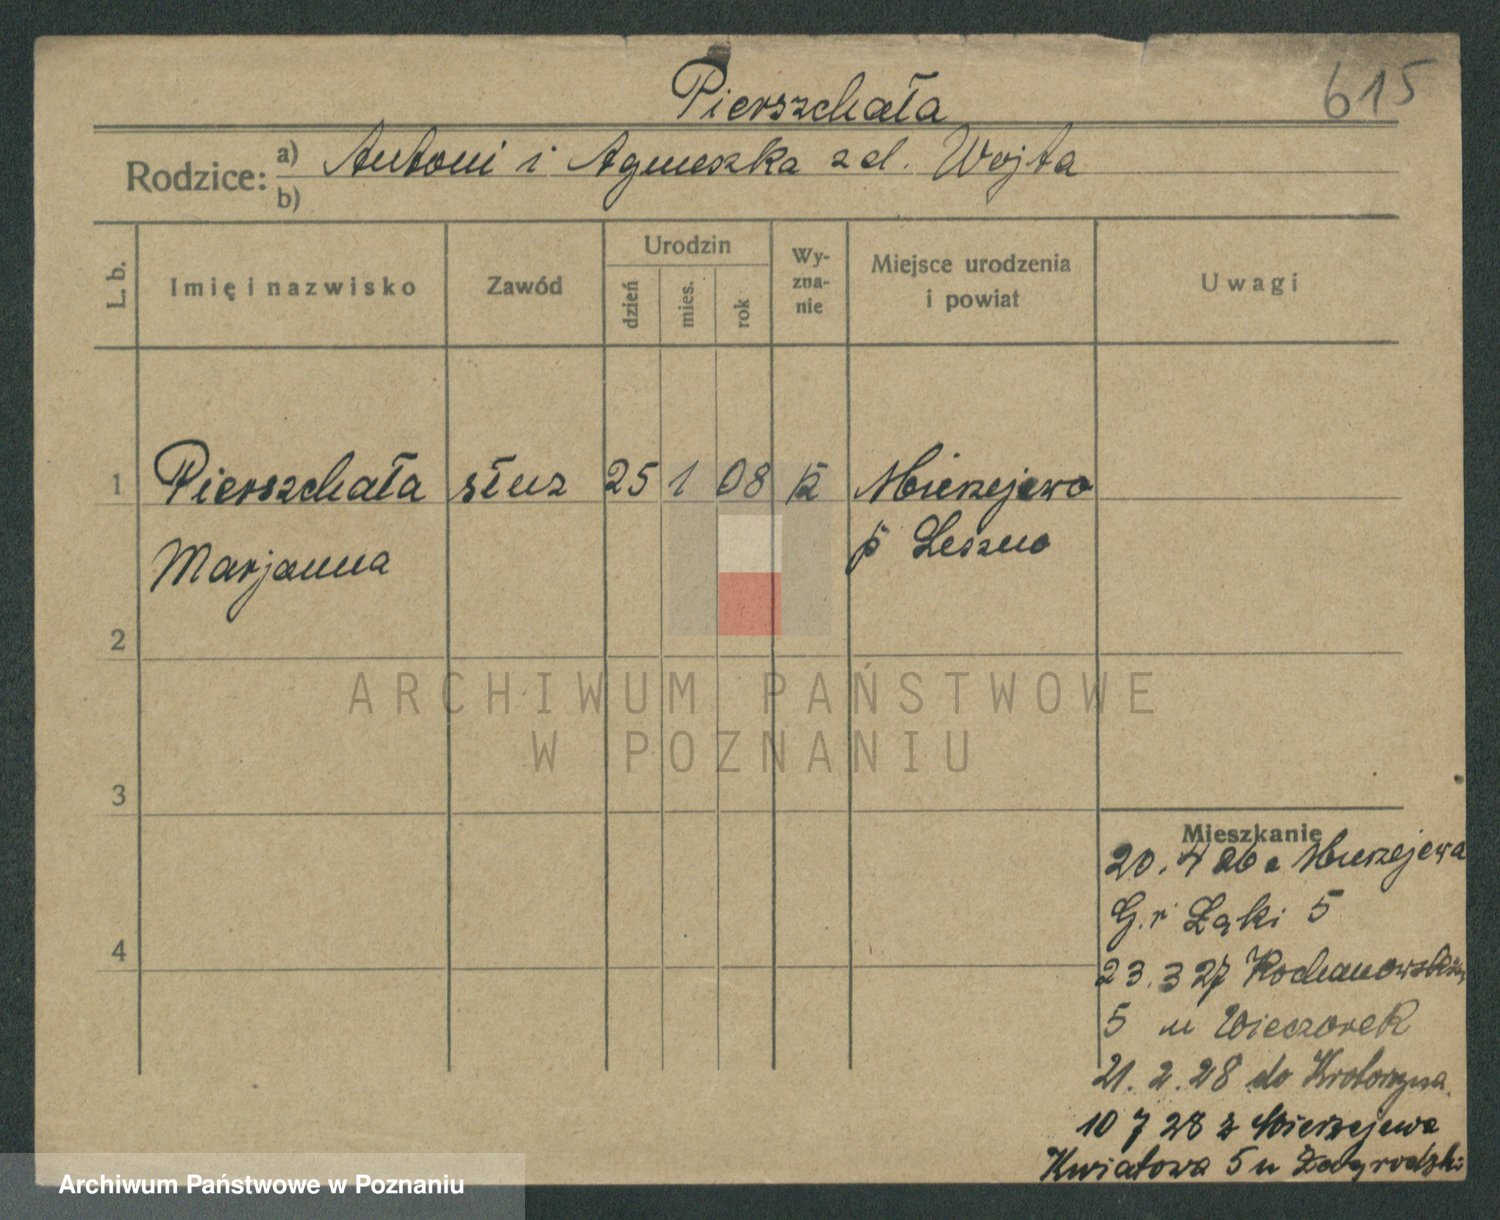 Pierszchała
615
Rodzice: a) Antoni i Agnieszka zd. Wojta
b)
L. b.
Imię i nazwisko
Zawód
Urodzin
dzień
mies.
rok
Wy-
zna-
nie
Miejsce urodzenia
i powiat
Uwagi
1 Pierszchała służ 25 1 08 Mierzejewo
Marjanna p Leszno
2
ARCHIWUM PAŃSTWOWE
W POZNANIU
3
4
Mieszkanie
20.4 26 z Mierzejewa
G.r Łąki 5
23.3 27 Kochanowskiego
5 u Wieczorek
21.2.28 do Krotoszyna
10 7 28 z Mierzejewa
Kwiatowa 5 u Zagrodzki
Archiwum Państwowe w Poznaniu